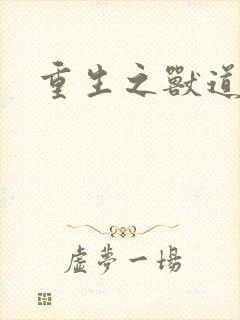 重生之獸道
虛夢一場